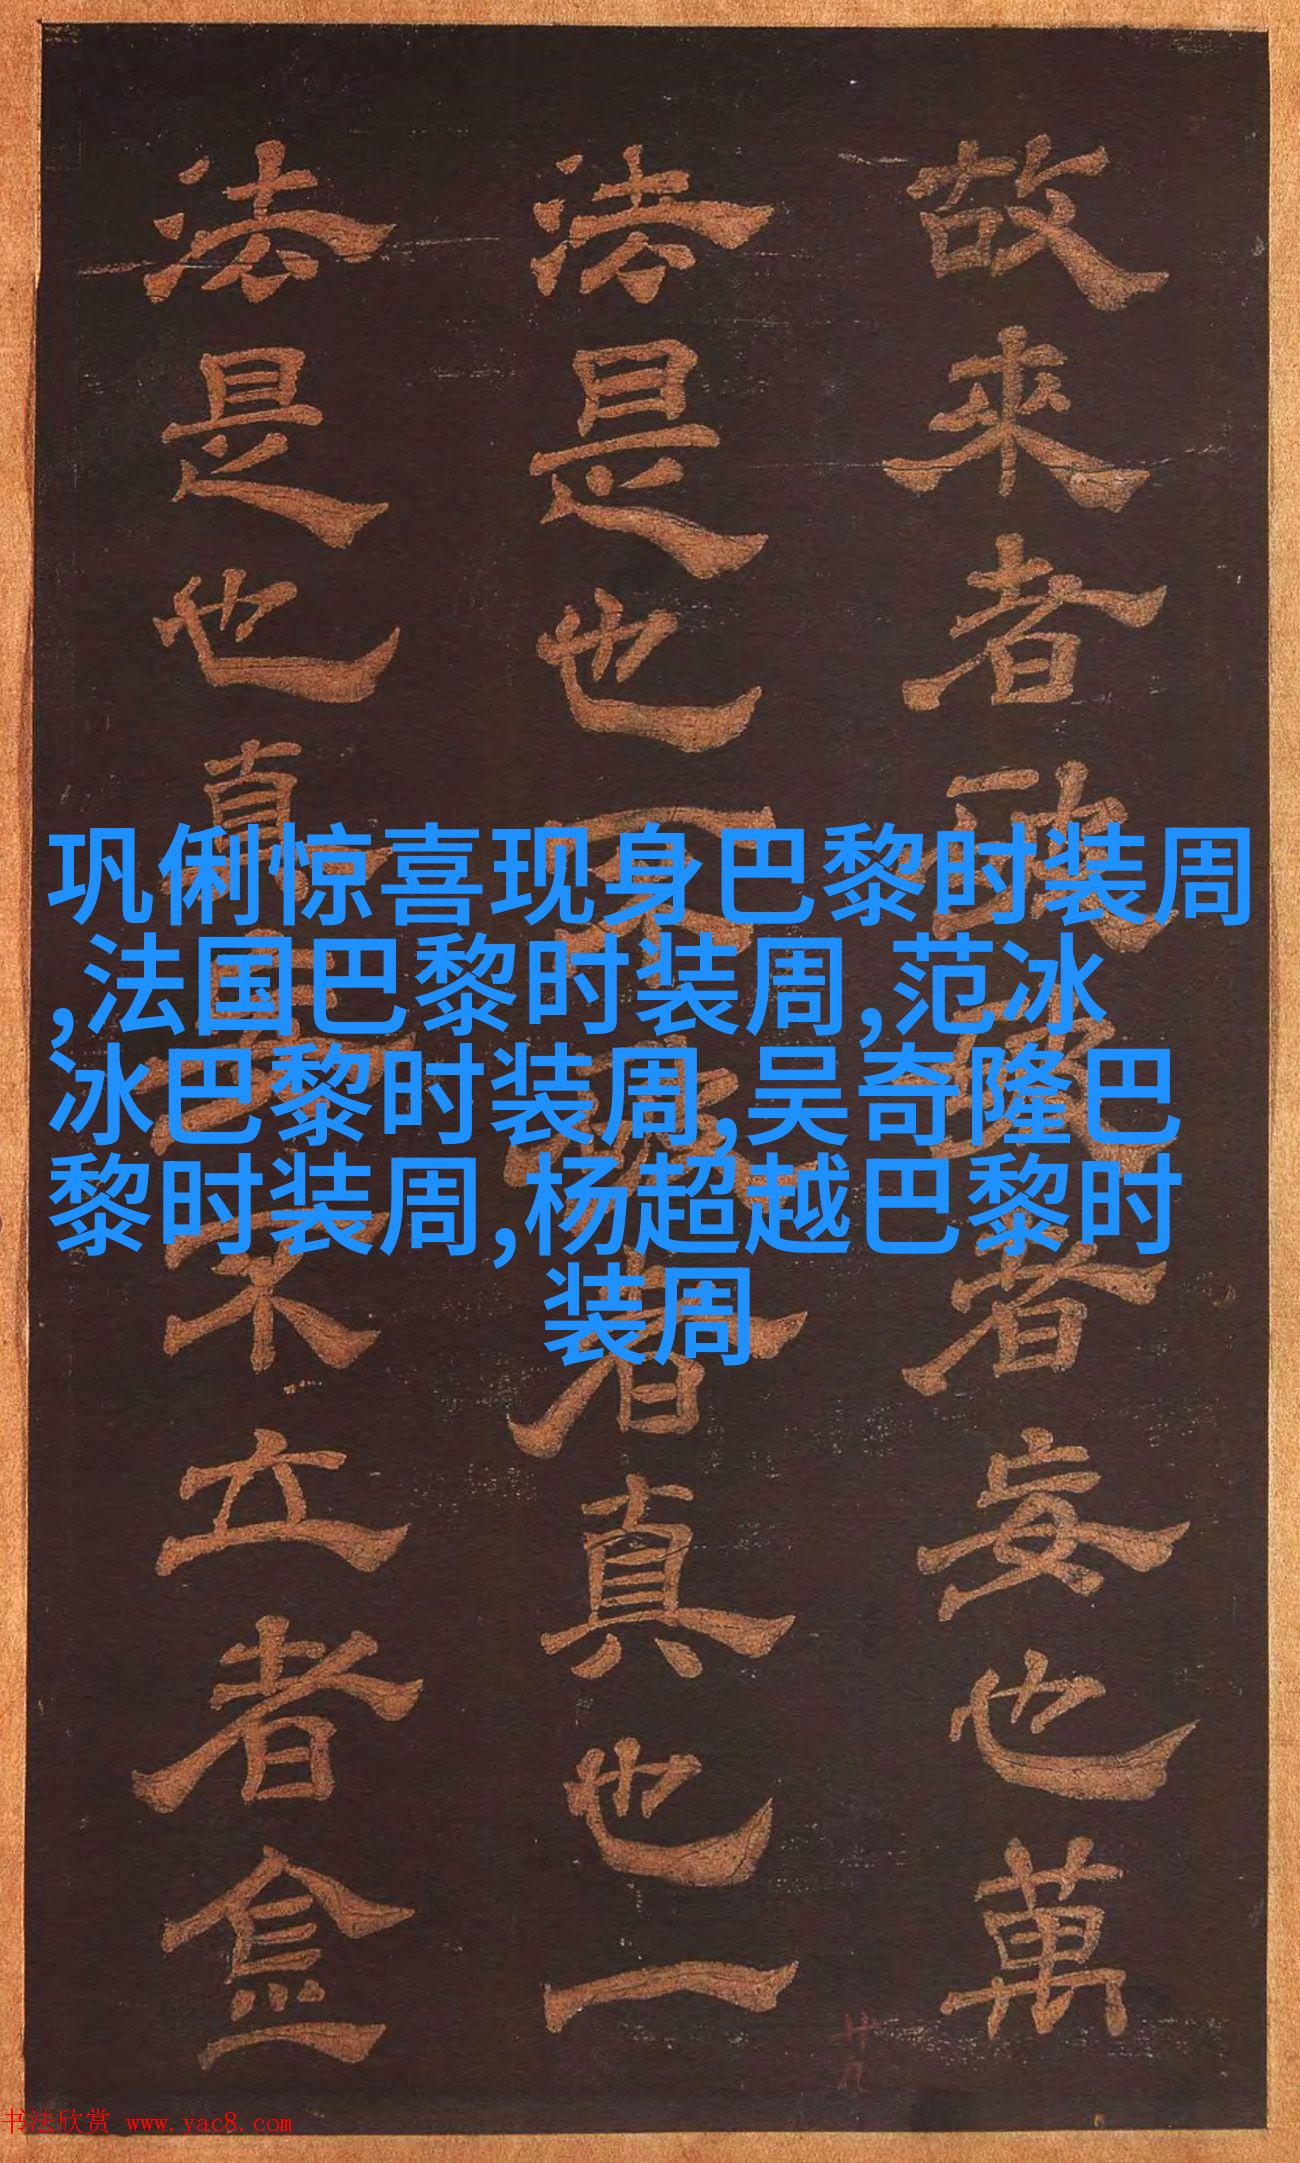 巩俐惊喜现身巴黎时装周
,法国巴黎时装周,范冰
冰巴黎时装周,吴奇隆巴
黎时装周,杨超越巴黎时
装周
故來者者妄也萬
法是也者真也一
法是也真不立者
书法欣赏 www.yac8.com